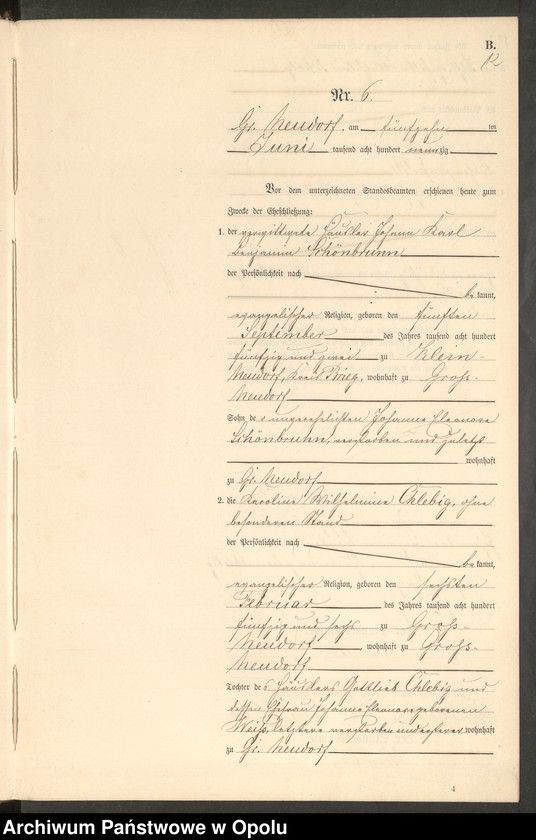 B.
12
Nr. 6.
Gr. Neudorf, am fünfzehn ten
Juni tausend acht hundert neunzig
Vor dem unterzeichneten Standesbeamten erschienen heute zum
Zwecke der Eheschließung:
1. der verwittwete Häusler Johann Karl
Benjamin Schönbrunn
der Persönlichkeit nach
be kannt,
evangelischer Religion, geboren den fünften
September des Jahres tausend acht hundert
fünfzig und zwei zu Klein-
Neudorf, Kreis Brieg, wohnhaft zu Groß-
Neudorf
Sohn der unverehelichten Johanna Eleonore
Schönbrunn, verstorben und zuletzt
wohnhaft
zu Gr. Neudorf
2. die Karoline Wilhelmine Chlebig, ohne
besonderen Stand
der Persönlichkeit nach
be kannt,
evangelischer Religion, geboren den sechsten
Februar des Jahres tausend acht hundert
fünfzig und sechs zu Groß-
Neudorf, wohnhaft zu Groß-
Neudorf
Tochter des Häuslers Gottlieb Chlebig und
dessen Ehefrau Johanna Eleonore geborenen
Weiß, letztere verstorben und ersterer wohnhaft
zu Gr. Neudorf
4
Archiwum Państwowe w Opolu